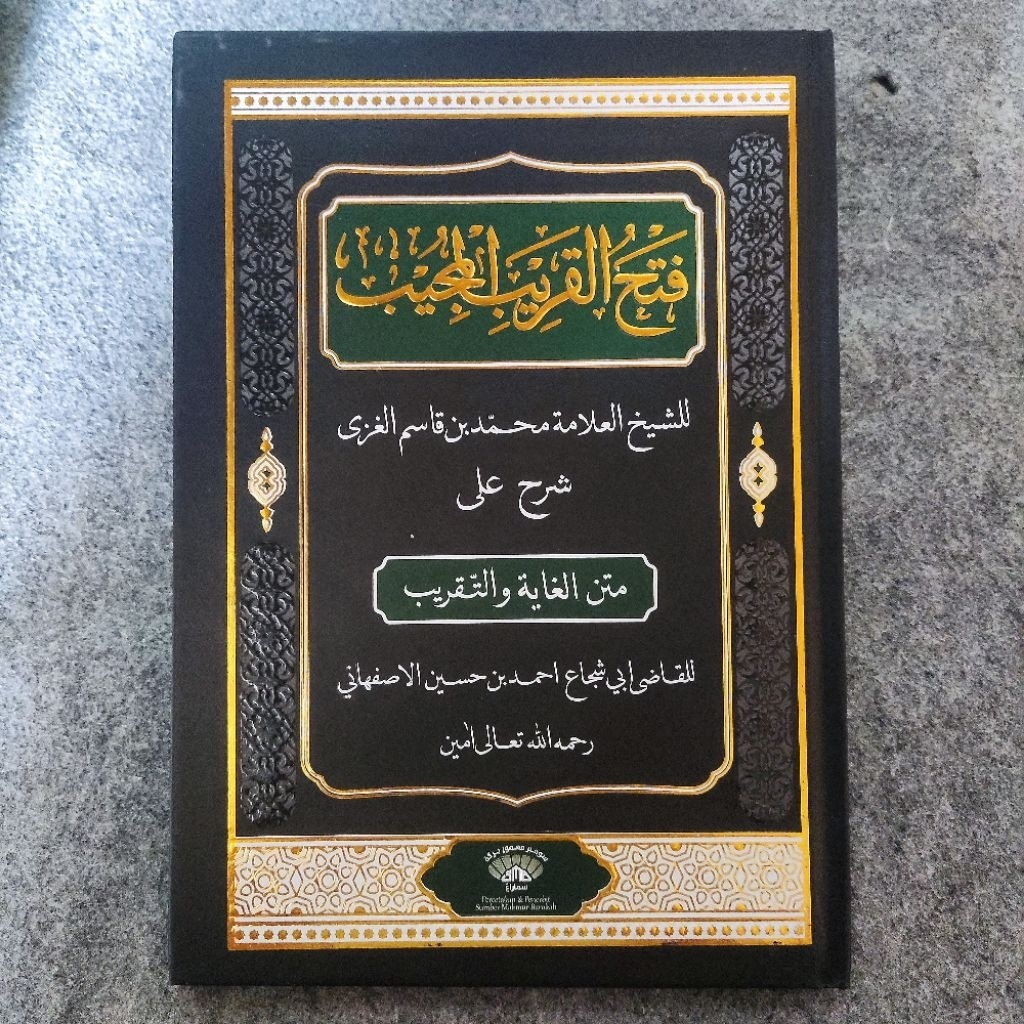 فَتْحُ الْقَرِيْبِ الْمُجِيْبُ
للشيخ العلامة محمّد بن قاسم الغزى
شرح على
متن الغاية والتّقريب
للقاضى ابي شجاع احمد بن حسين الاصفهاني
رحمه الله تعالى امين
سومبر معمور بركة
سماراغ
Percetakan & Penerbit
Sumber Makmur Barokah